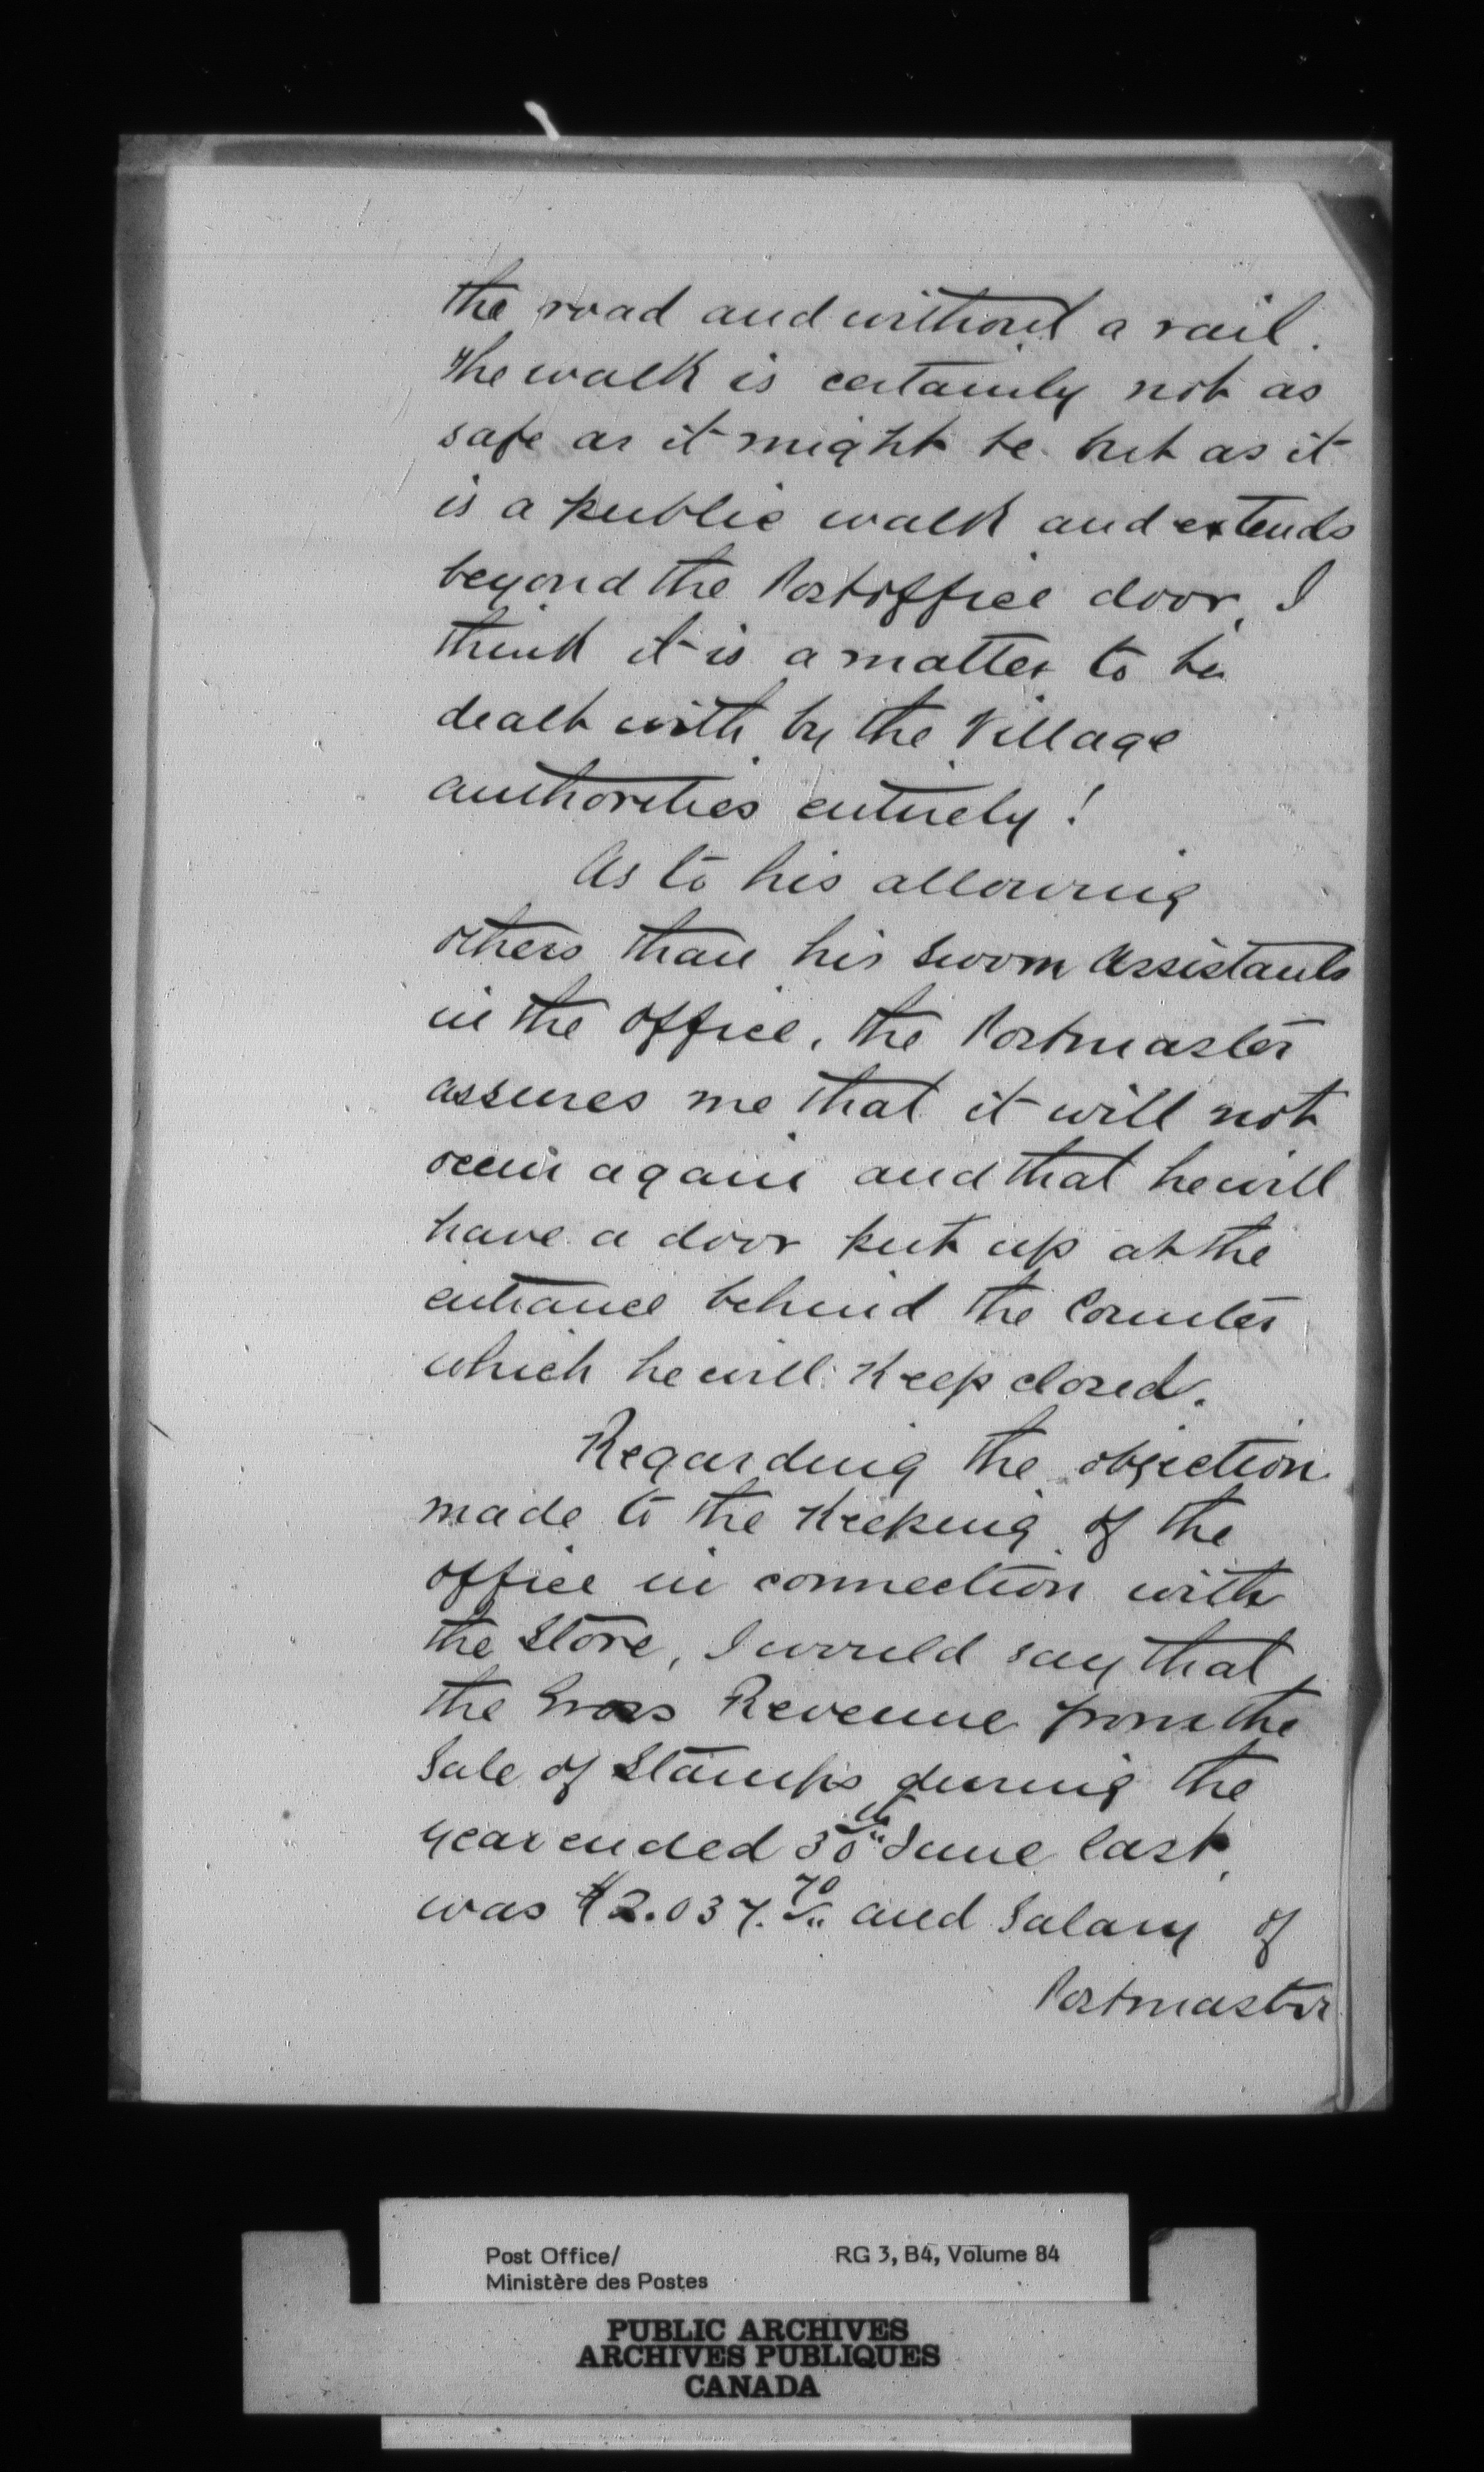 the road and without a rail.
The walk is certainly not as
safe as it might be but as it
is a public walk and extends
beyond the Postoffice door, I
think it is a matter to be
dealt with by the Village
authorities entirely!
As to his allowing
others than his sworn Assistants
in the office, the Postmaster
assures me that it will not
occur again and that he will
have a door put up at the
entrance behind the Counter
which he will keep closed.
Regarding the objection
made to the keeping of the
office in connection with
the Store, I would say that
the Gross Revenue from the
Sale of Stamps during the
year ended 30th June last,
was $2.037.70 and Salary of
Postmaster
Post Office/
Ministère des Postes
RG 3, B4, Volume 84
PUBLIC ARCHIVES
ARCHIVES PUBLIQUES
CANADA